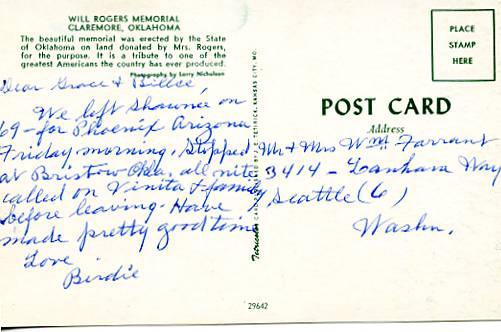 WILL ROGERS MEMORIAL
CLAREMORE, OKLAHOMA
The beautiful memorial was erected by the State
of Oklahoma on land donated by Mrs. Rogers,
for the purpose. It is a tribute to one of the
greatest Americans the country has ever produced.
Photography by Larry Nicholson
PLACE
STAMP
HERE
POST CARD
Address
Dear Grace & Billee,
We left Shawnee on
69-for Phoenix Arizona
Friday morning. Stopped
at Bristow Okla. all nite
called on Vinita & family
before leaving. Have
made pretty good time
Love
Birdie
Mr & Mrs Wm Farrant
3414 - Lanham Way
Seattle (6)
Washn.
29642